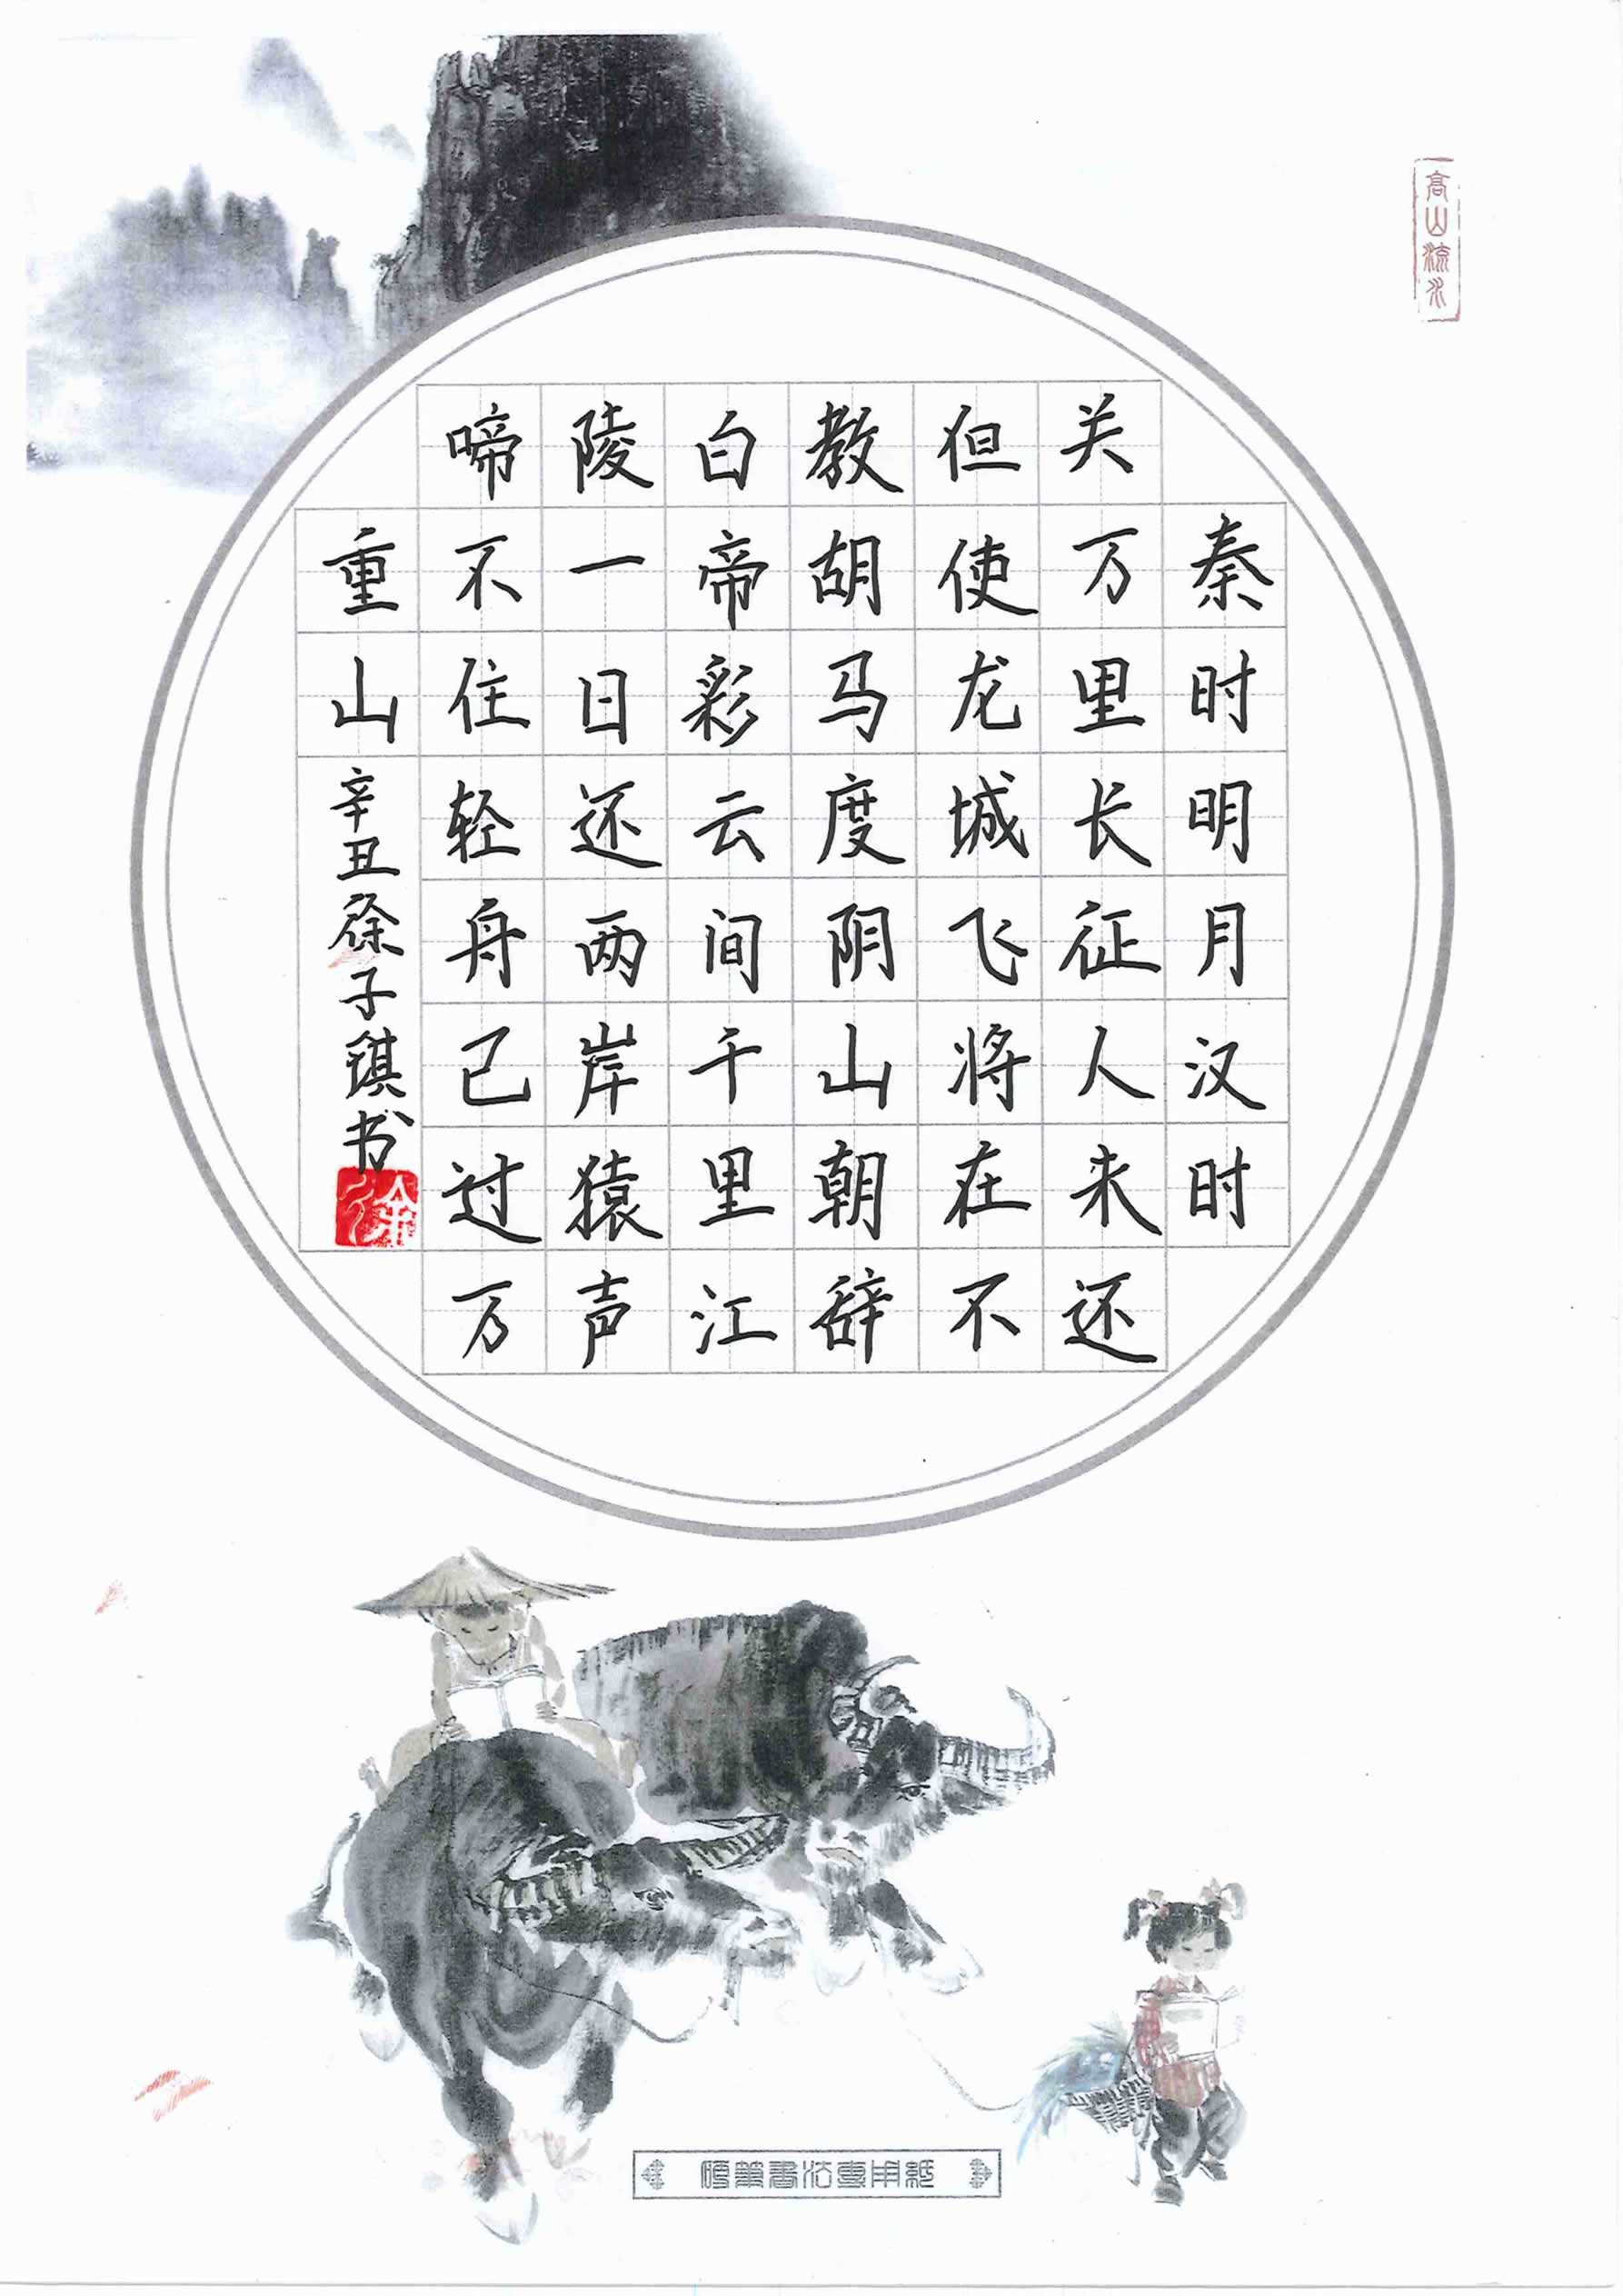 秦时明月汉时
关万里长征人来还
但使龙城飞将在不
教胡马度阴山朝辞
白帝彩云间千里江
陵一日还两岸猿声
啼不住轻舟已过万
重山
辛丑徐子鍇书
徐
高山流水
硬笔书法专用纸